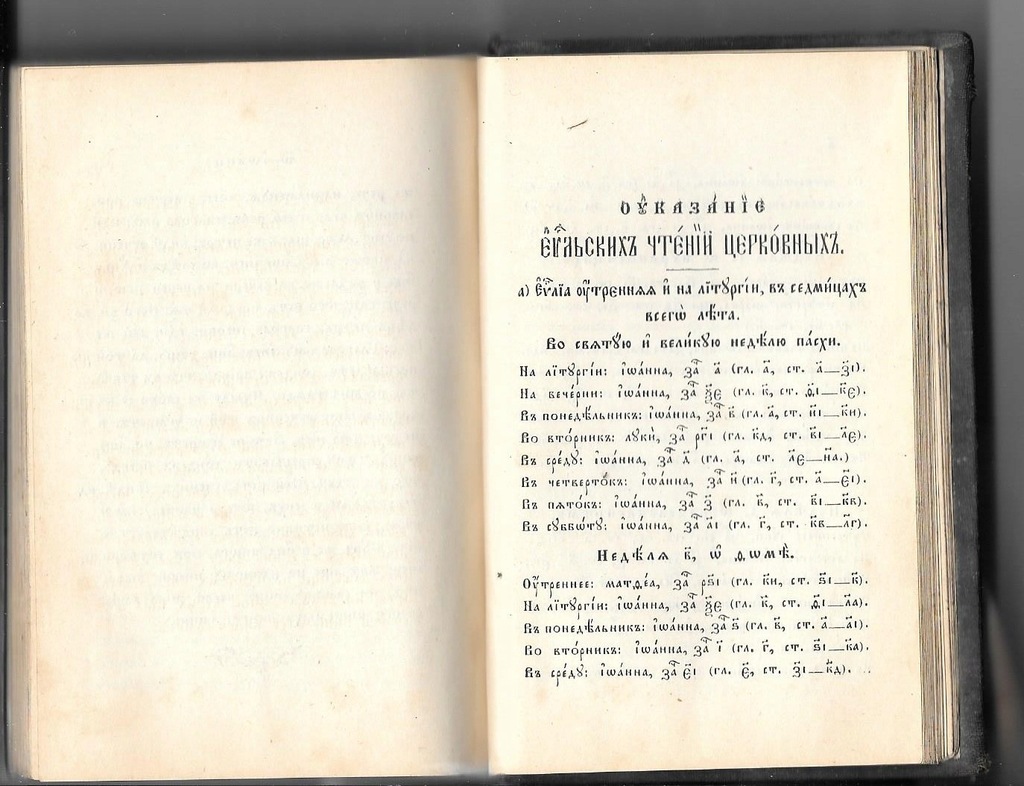 Оу҆каза́нїе
Е҆ѵⷢ҇льскихъ чте́нїй церко́вныхъ.
а) Е҆ѵⷢ҇лїа оу҆́тренняя и҆ на лїтꙋргі́и, въ седми́цахъ
всегѡ̀ лѣ́та.
Во свят꙼ꙋ́ю и҆ вели́кꙋю недѣ́лю па́схи.
На лїтꙋргі́и: і҆ѡа́нна, заⷱ҇ а҃ (гл. а҃, ст. а҃—з҃і).
На вече́рни: і҆ѡа́нна, заⷱ҇ ѯ҃є (гл. к҃, ст. ѳ҃і—к҃є).
Въ понедѣ́льникъ: і҆ѡа́нна, заⷱ҇ в҃ (гл. а҃, ст. и҃і—к҃и).
Во вто́рникъ: лꙋкѝ, заⷱ҇ рг҃і (гл. к҃д, ст. в҃і—л҃є).
Въ сре́дꙋ: і҆ѡа́нна, заⷱ҇ д҃ (гл. а҃, ст. л҃є—н҃а.)
Въ четверто́къ: і҆ѡа́нна, заⷱ҇ и҃ (гл. г҃, ст. а҃—є҃і).
Въ пято́къ: і҆ѡа́нна, заⷱ҇ з҃ (гл. в҃, ст. в҃і—к҃в).
Въ сꙋббѡ́тꙋ: і҆ѡа́нна, заⷱ҇ а҃і (гл. г҃, ст. к҃в—л҃г).
Недѣ́ля в҃, ѡ҆ ѳѡмѣ̀.
Оу҆́треннее: матѳе́а, заⷱ҇ рѕ҃і (гл. к҃и, ст. ѕ҃і—к҃).
На лїтꙋргі́и: і҆ѡа́нна, заⷱ҇ ѯ҃є (гл. к҃, ст. ѳ҃і—л҃а).
Въ понедѣ́льникъ: і҆ѡа́нна, заⷱ҇ ѕ҃ (гл. в҃, ст. а҃—а҃і).
Во вто́рникъ: і҆ѡа́нна, заⷱ҇ і҃ (гл. г҃, ст. ѕ҃і—к҃а).
Въ сре́дꙋ: і҆ѡа́нна, заⷱ҇ є҃і (гл. є҃, ст. з҃і—к҃д).